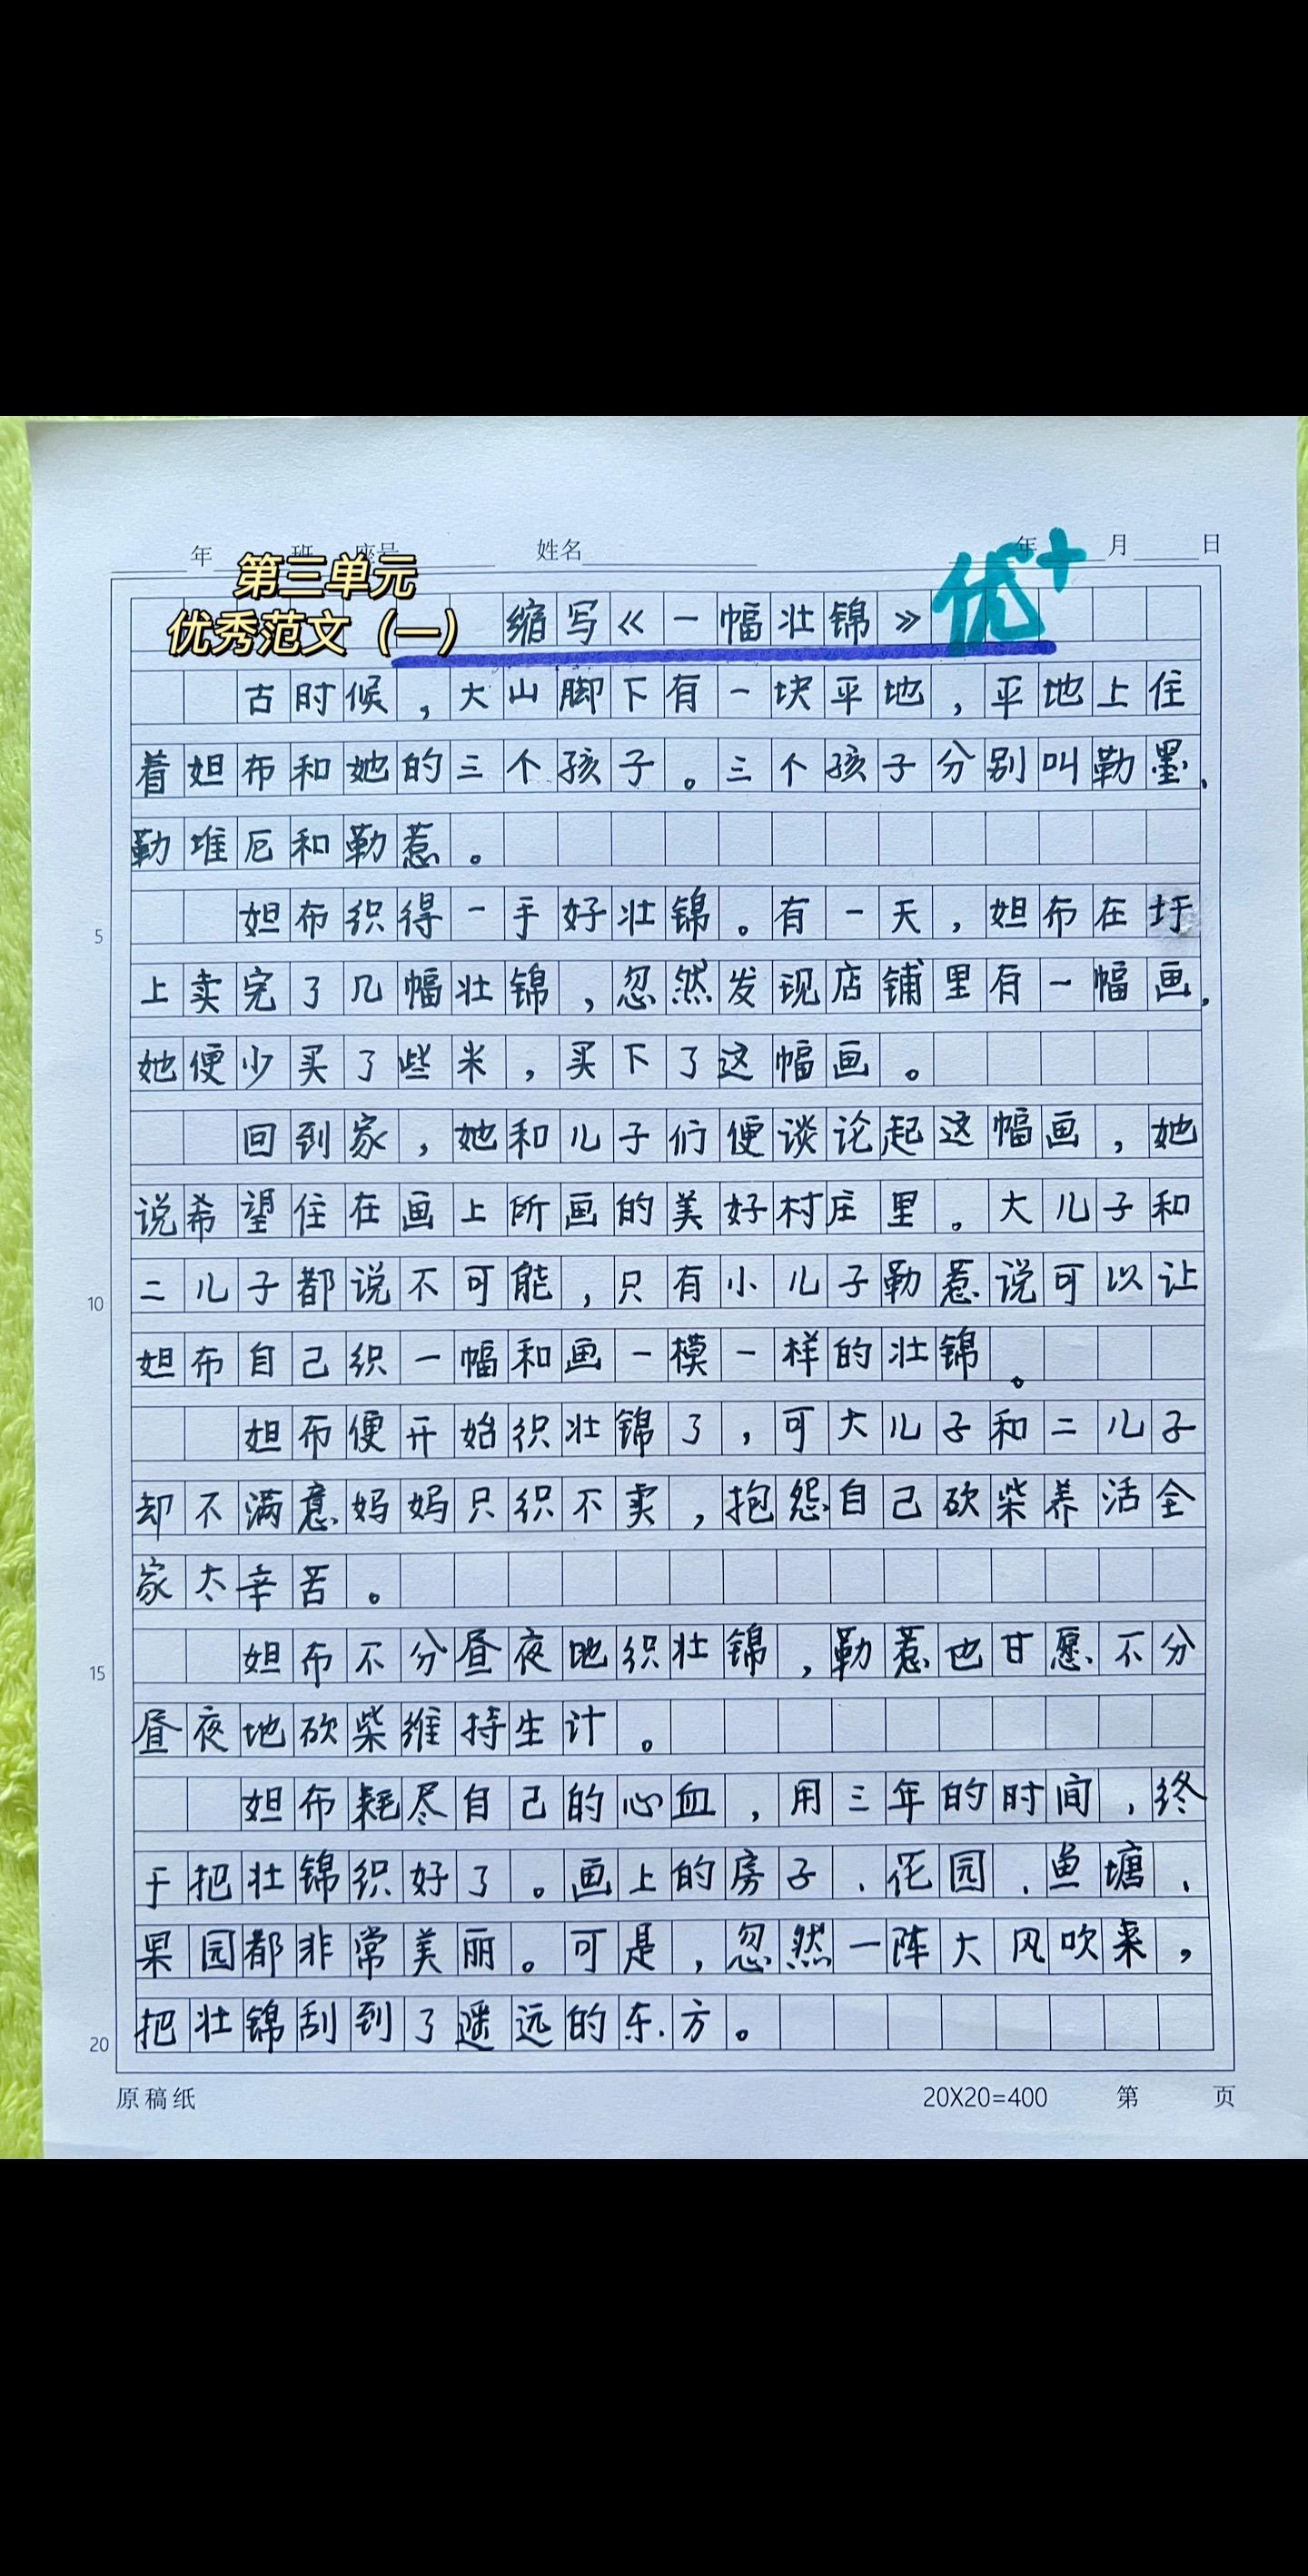 年 班 座号 姓名 年 月 日
第三单元
优秀范文（一）
缩写《一幅壮锦》
优+
古时候，大山脚下有一块平地，平地上住
着妲布和她的三个孩子。三个孩子分别叫勒墨、
勒堆厄和勒惹。
妲布织得一手好壮锦。有一天，妲布在圩
5
上卖完了几幅壮锦，忽然发现店铺里有一幅画，
她便少买了些米，买下了这幅画。
回到家，她和儿子们便谈论起这幅画，她
说希望住在画上所画的美好村庄里。大儿子和
二儿子都说不可能，只有小儿子勒惹说可以让
10
妲布自己织一幅和画一模一样的壮锦。
妲布便开始织壮锦了，可大儿子和二儿子
却不满意妈妈只织不卖，抱怨自己砍柴养活全
家太辛苦。
妲布不分昼夜地织壮锦，勒惹也甘愿不分
15
昼夜地砍柴维持生计。
妲布耗尽自己的心血，用三年的时间，终
于把壮锦织好了。画上的房子、花园、鱼塘、
果园都非常美丽。可是，忽然一阵大风吹来，
把壮锦刮到了遥远的东方。
20
原稿纸 20X20=400 第 页